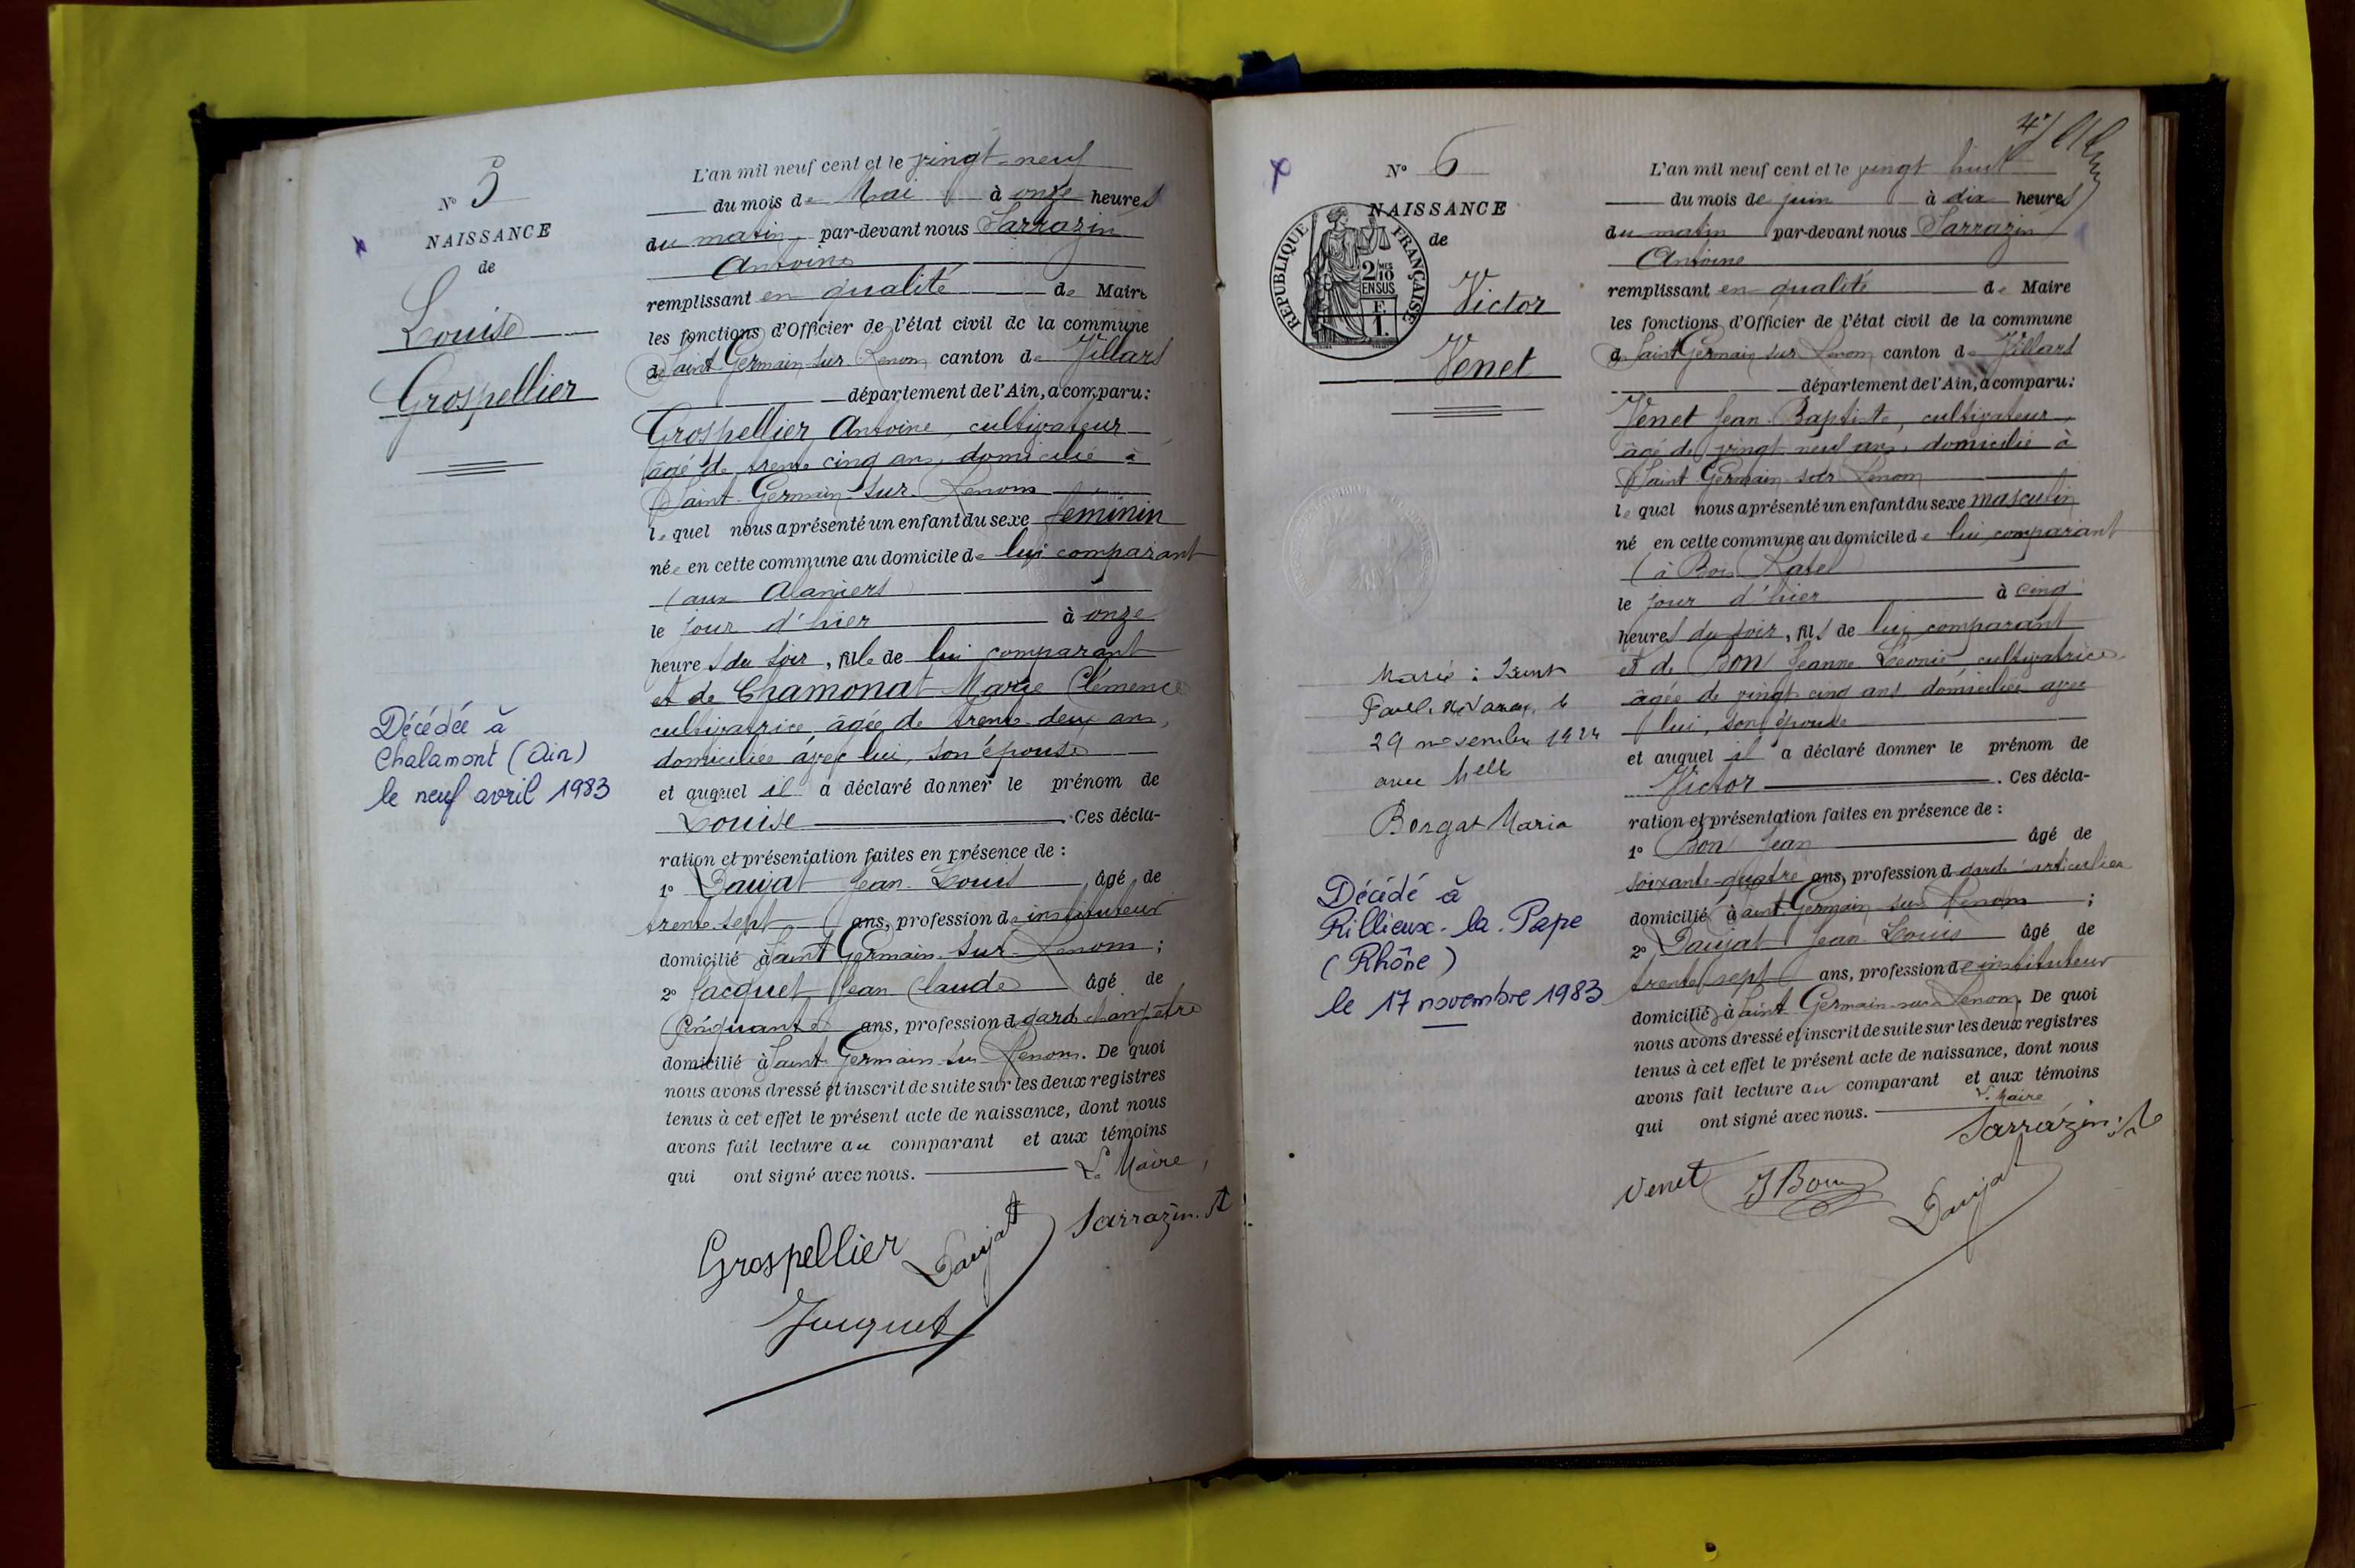 N° 5
NAISSANCE
de
Louise
Grospellier
Décédée à
Chalamont (Ain)
le neuf avril 1983
L'an mil neuf cent et le vingt-neuf
du mois de Mai à onze heures
du matin, par-devant nous Sarrazin
Antoine
remplissant en qualité de Maire
les fonctions d'Officier de l'état civil de la commune
de Saint Germain sur Renom canton de Villars
département de l'Ain, a comparu :
Grospellier Antoine, cultivateur
âgé de trente cinq ans, domicilié à
Saint-Germain-sur-Renom
lequel nous a présenté un enfant du sexe féminin
née en cette commune au domicile de lui comparant
(aux Alaniers)
le jour d'hier à onze
heures du soir, fille de lui comparant
et de Chamonat Marie Clémence
cultivatrice, âgée de trente-deux ans,
domiciliée avec lui, son épouse
et auquel il a déclaré donner le prénom de
Louise Ces décla-
ration et présentation faites en présence de :
1° Daujat Jean-Louis âgé de
trente-sept ans, profession d'instituteur
domicilié à Saint Germain-sur-Renom ;
2° Jacquet Jean Claude âgé de
Cinquante ans, profession de garde champêtre
domicilié à Saint-Germain-sur Renom. De quoi
nous avons dressé et inscrit de suite sur les deux registres
tenus à cet effet le présent acte de naissance, dont nous
avons fait lecture au comparant et aux témoins
qui ont signé avec nous. Le Maire,
Grospellier Daujat Sarrazin. A
Jacquet
4
N° 6
NAISSANCE
de
RÉPUBLIQUE FRANÇAISE
2/10 MES
EN SUS
F
1.
Victor
Venet
Marié à
29 novembre 1924
avec Melle
Borgat Maria
Décédé à
Rillieux-la-Pape
(Rhône)
le 17 novembre 1983
L'an mil neuf cent et le vingt huit
du mois de juin à dix heures
du matin par-devant nous Sarrazin
Antoine
remplissant en qualité de Maire
les fonctions d'Officier de l'état civil de la commune
de Saint Germain sur Renom canton de Villars
département de l'Ain, a comparu :
Venet Jean-Baptiste, cultivateur,
âgé de vingt neuf ans, domicilié à
Saint Germain sur Renom
lequel nous a présenté un enfant du sexe masculin
né en cette commune au domicile de lui comparant
(à Bois Ratel
le jour d'hier à cinq
heures du soir, fils de lui comparant
et de Bon Jeanne Léonie, cultivatrice
âgée de vingt cinq ans domiciliée avec
lui, son épouse
et auquel il a déclaré donner le prénom de
Victor . Ces décla-
ration et présentation faites en présence de :
1° Bon Jean âgé de
soixante-quatre ans, profession de garde particulier
domicilié à Saint Germain sur Renom ;
2° Daujat Jean-Louis âgé de
trente sept ans, profession d'instituteur
domicilié à Saint Germain-sur-Renom. De quoi
nous avons dressé et inscrit de suite sur les deux registres
tenus à cet effet le présent acte de naissance, dont nous
avons fait lecture au comparant et aux témoins
qui ont signé avec nous. Le Maire
Sarrazin. A
Venet J Bon Daujat